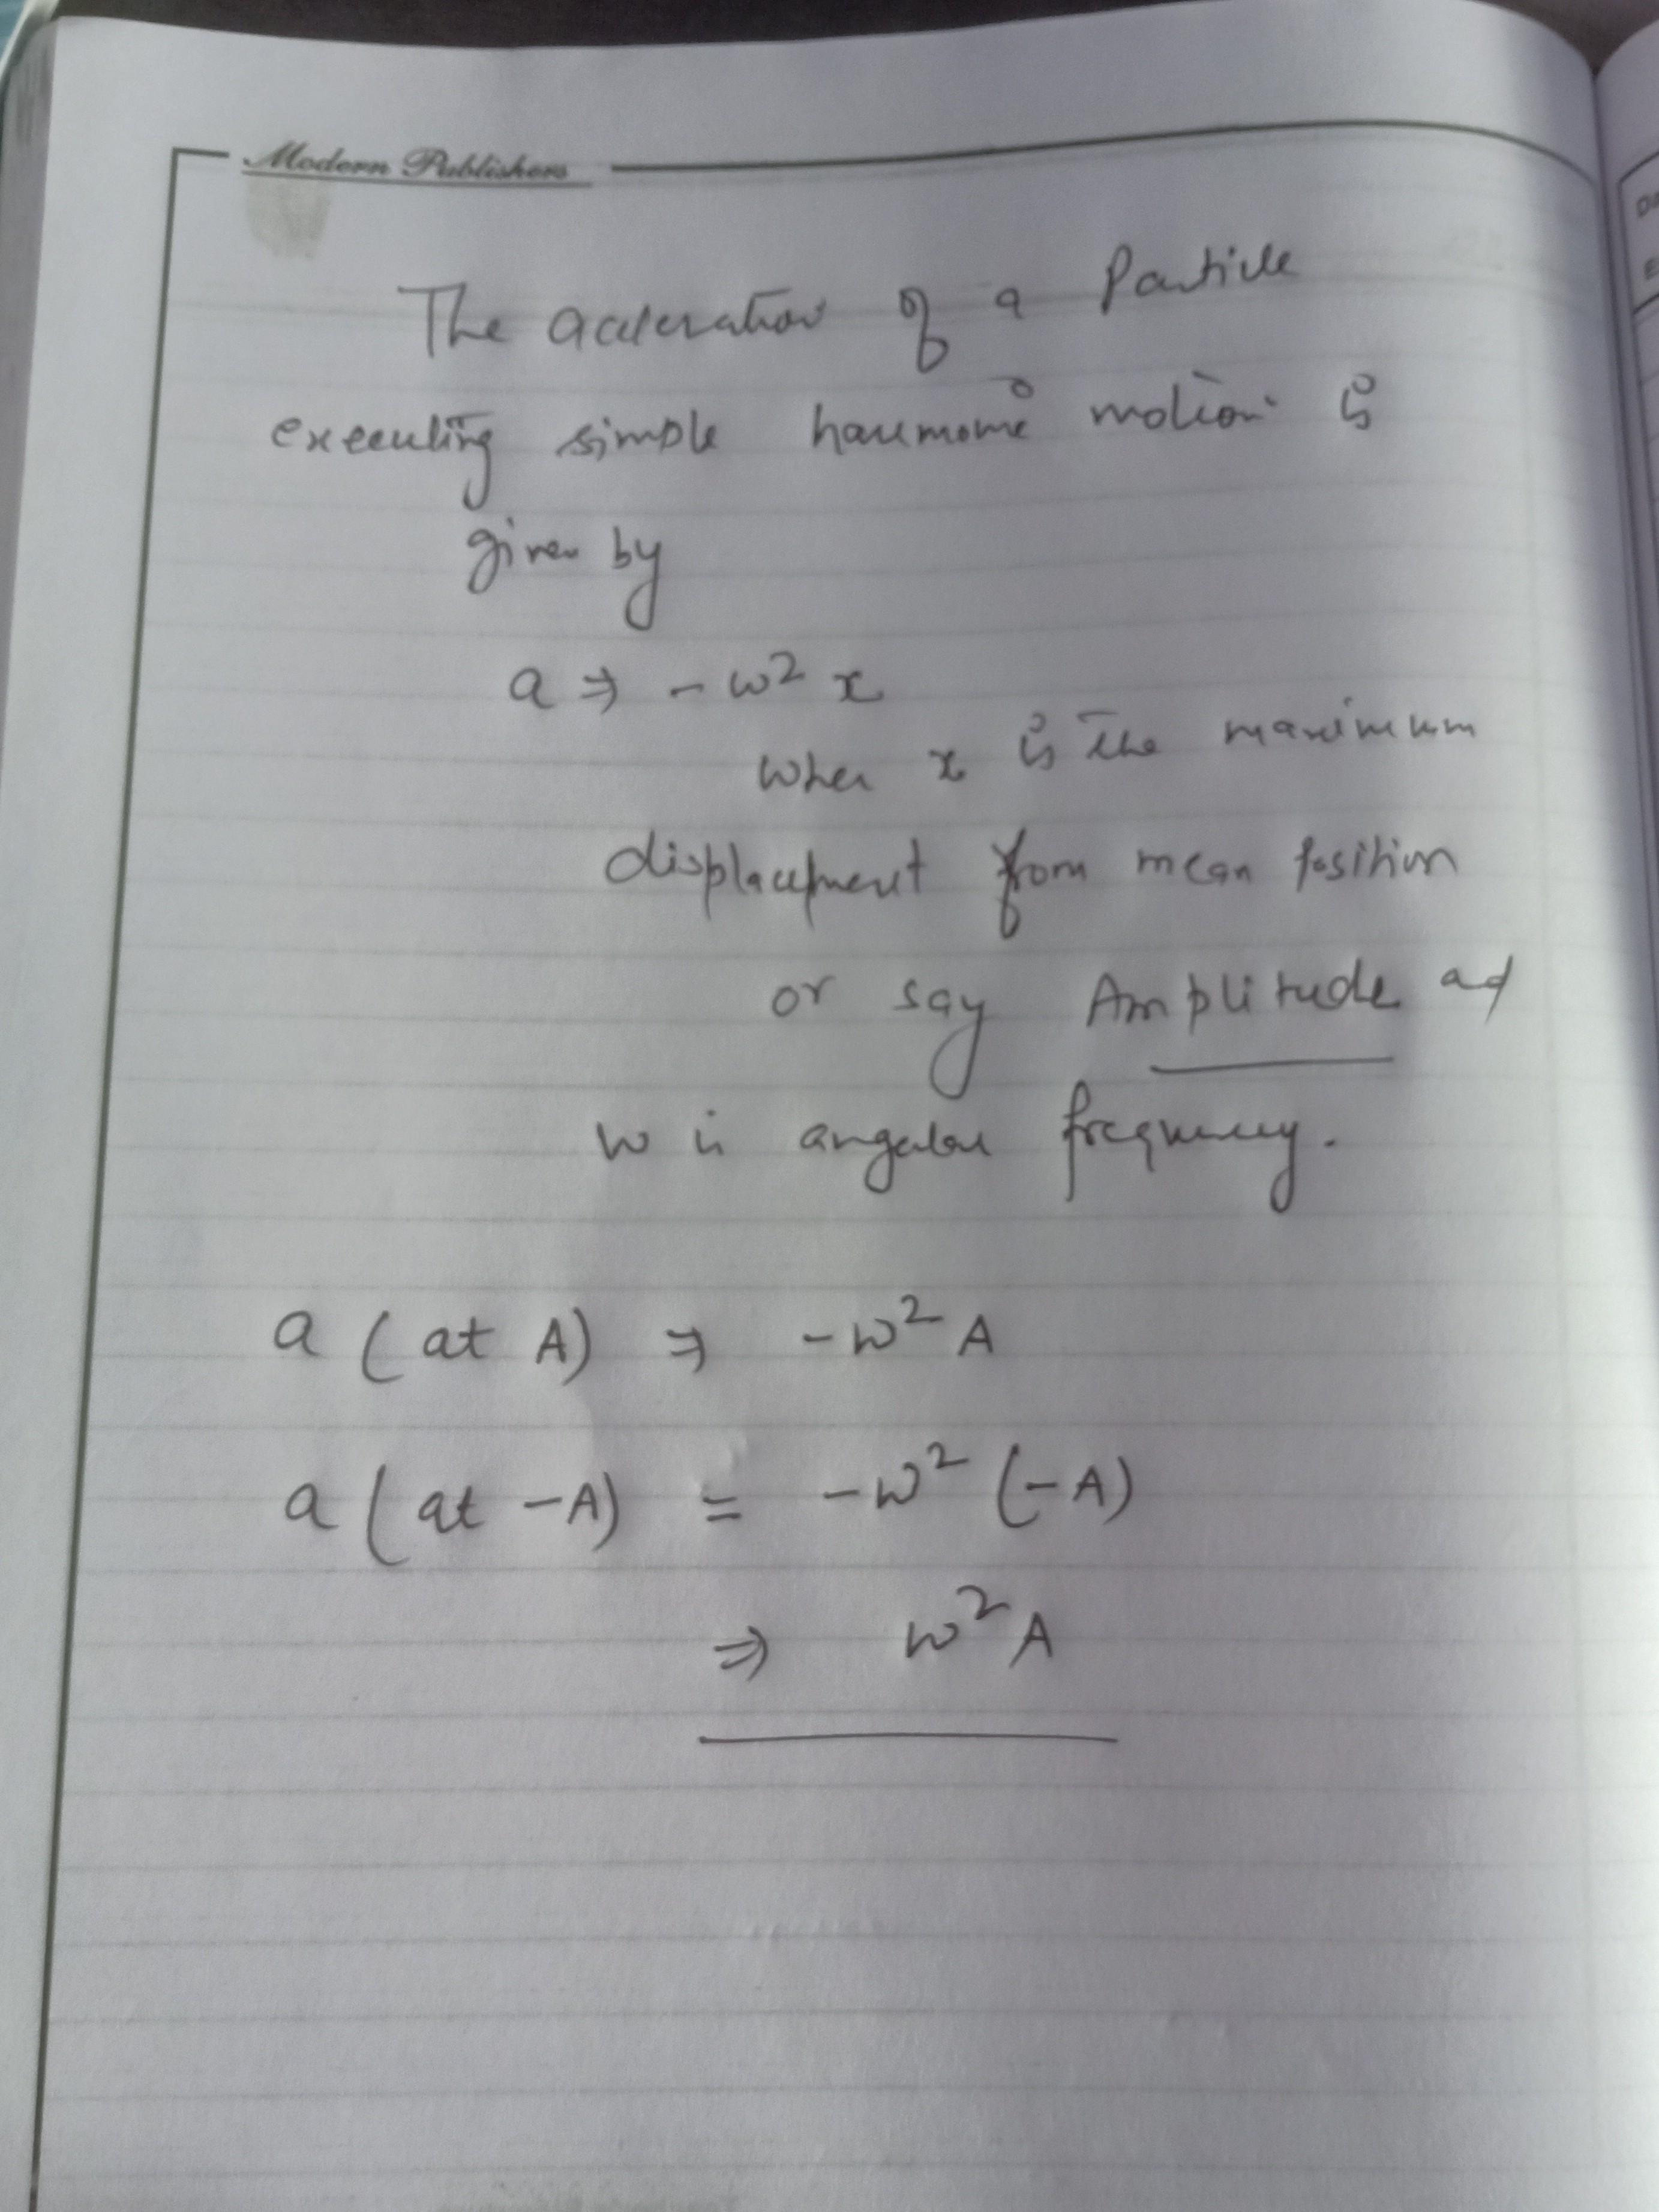 Modern Publishers
The acceleration of a Particle
executing simple harmonic motion is
given by
a ⇒ -w² x
when x is the maximum
displacement from mean position
or say Amplitude ad
w is angular frequency.
a ( at A) ⇒ -w² A
a ( at -A) = -w² (-A)
⇒ w² A